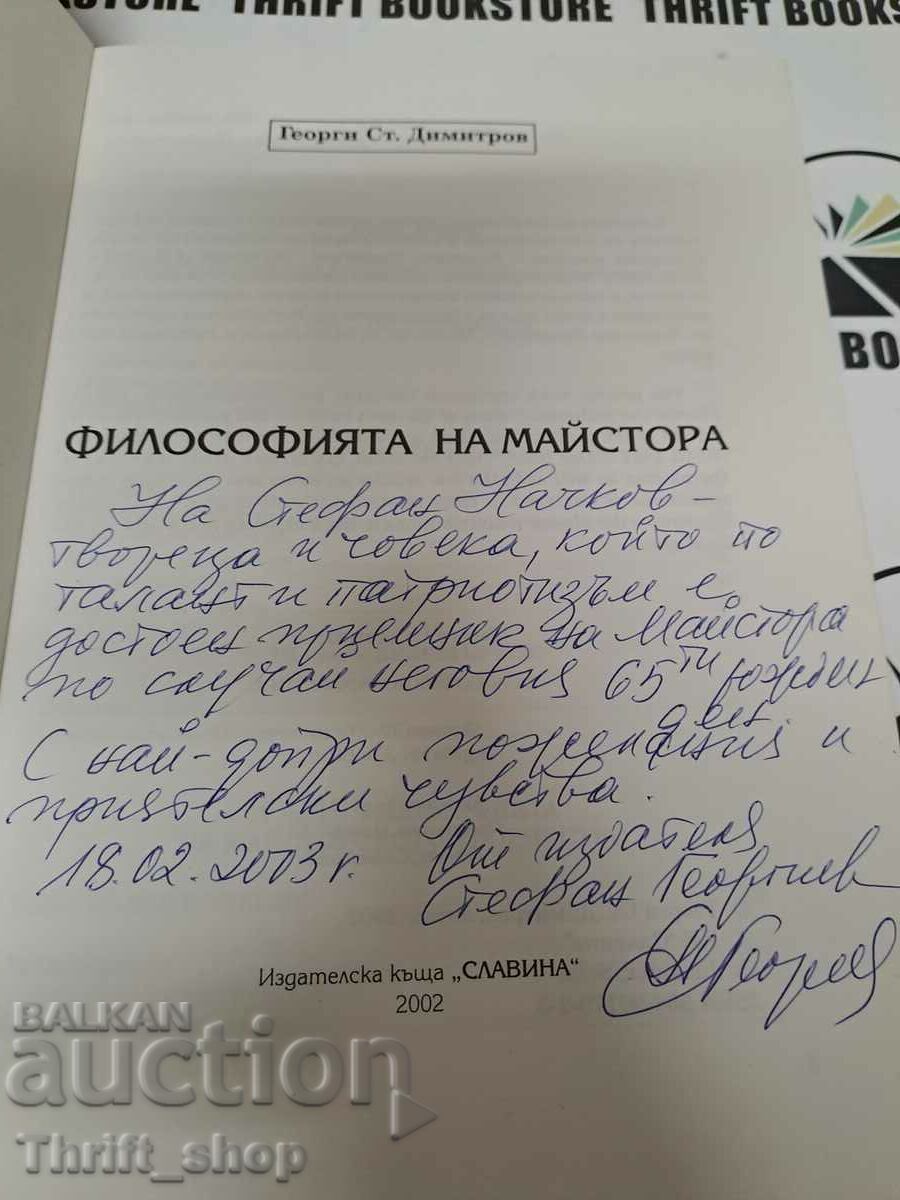 THRIFT BOOKSTORE THRIFT BOOKS
BO
Георги Ст. Димитров
ФИЛОСОФИЯТА НА МАЙСТОРА
На Стефан Начков –
твореца и човека, който по
талант и патриотизъм е
достоен приемник на Майстора
по случай неговия 65ТИ рожден
ден
С най-добри пожелания и
приятелски чувства.
18.02.2003 г. От издателя
Стефан Георгиев
Издателска къща „СЛАВИНА“
2002
BALKAN
auction
Thrift_shop